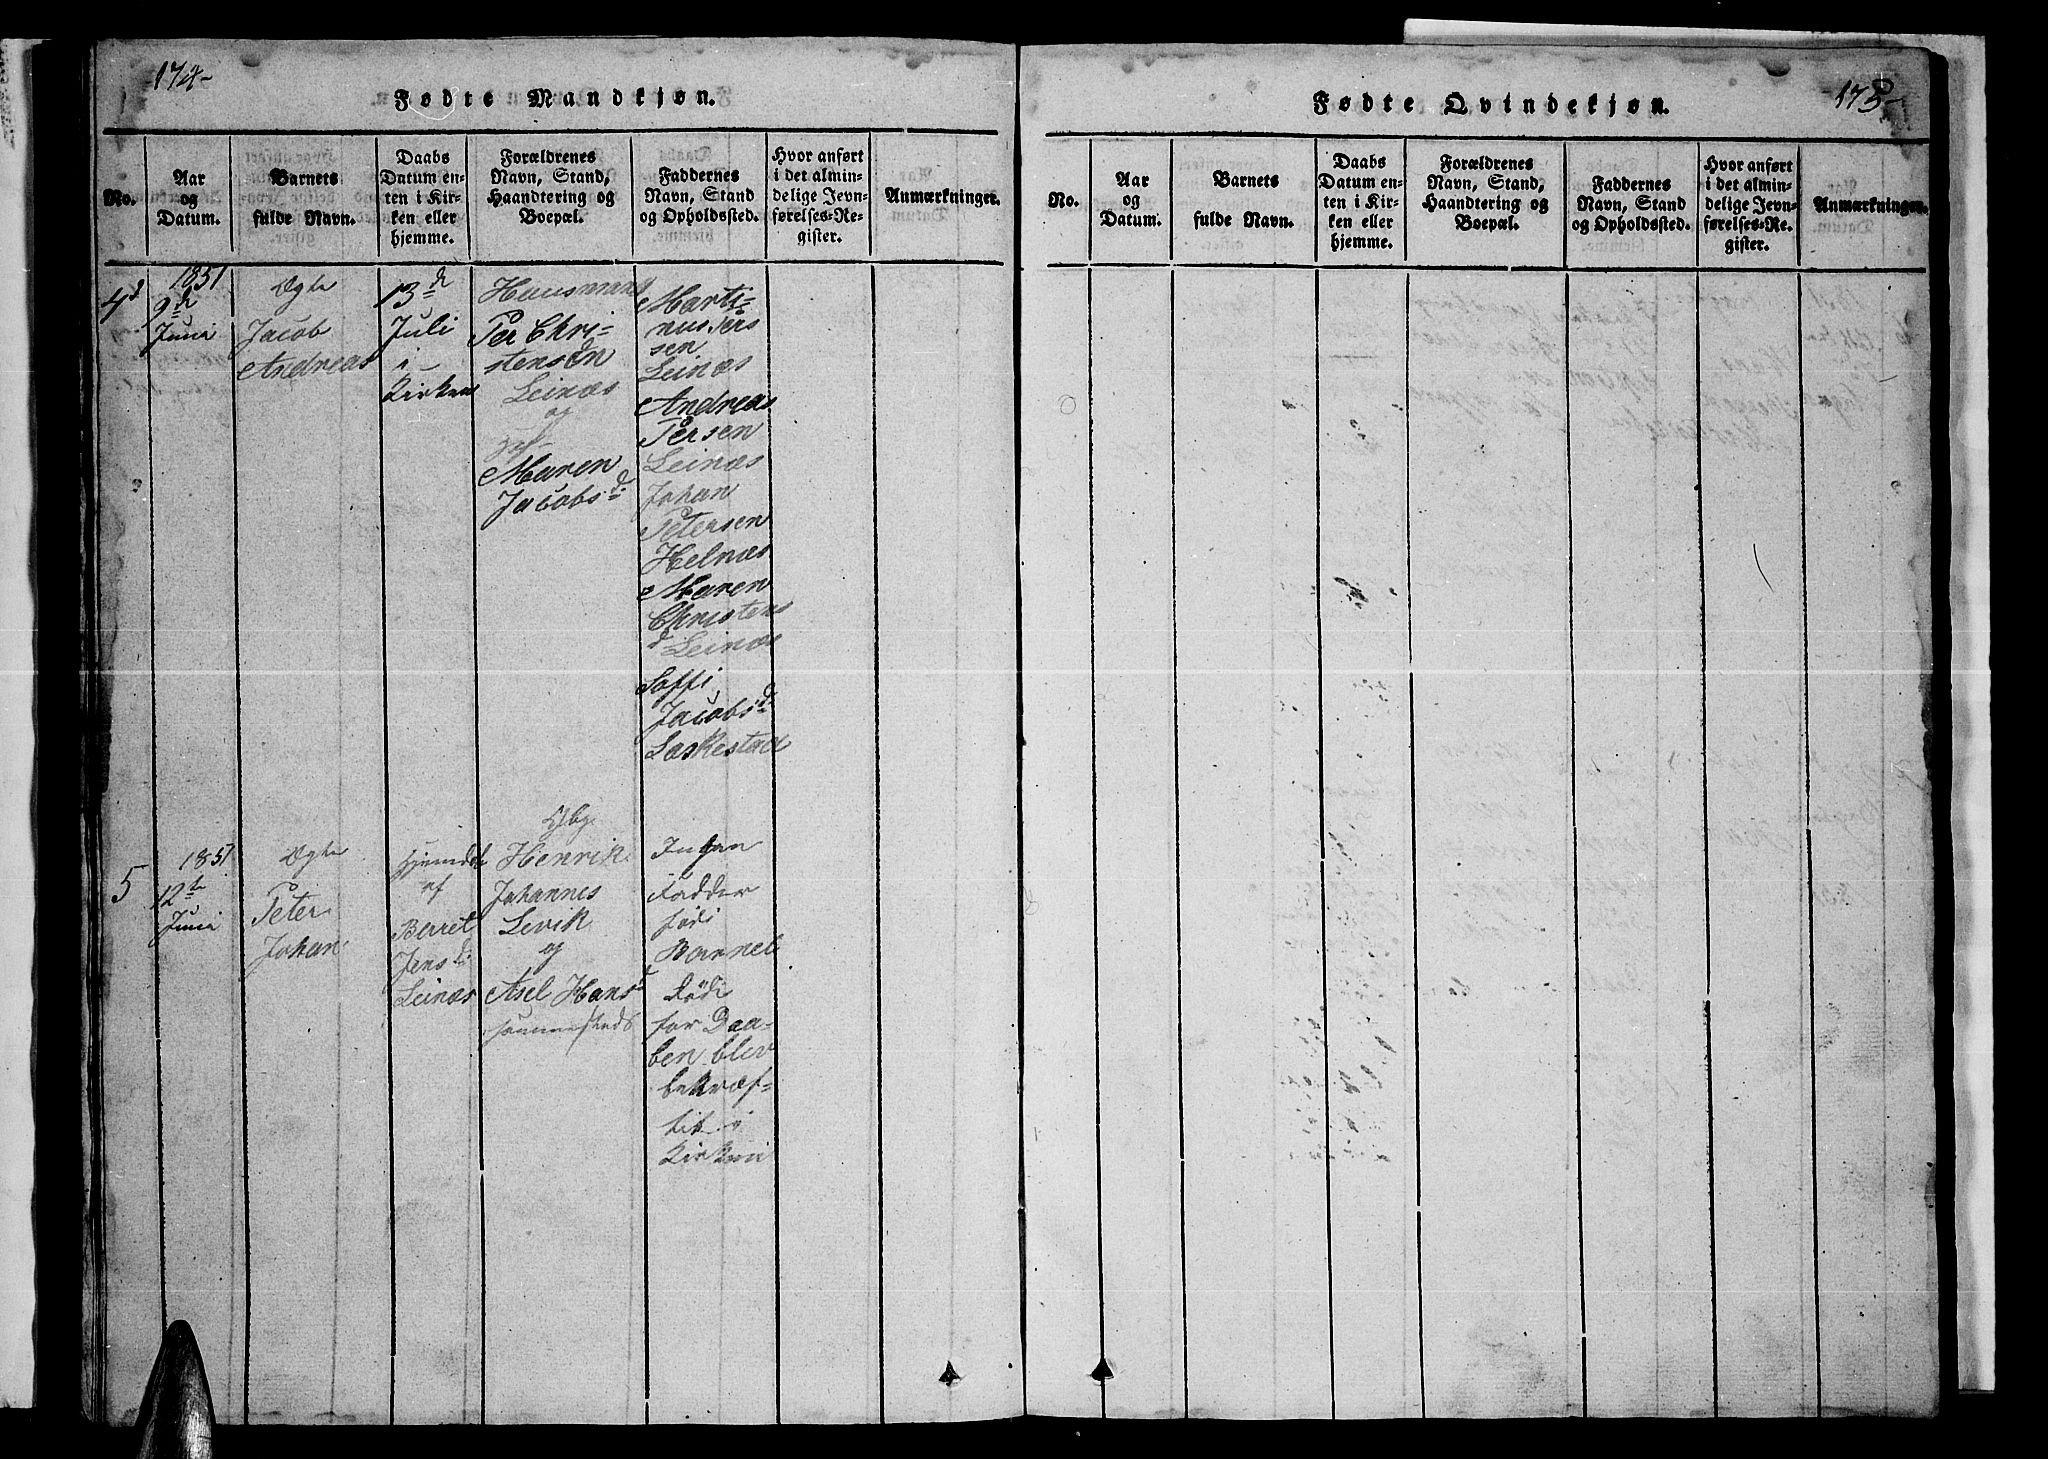 174-
Fødte Mandkjøn.
No.
Aar
og
Datum.
Barnets
fulde Navn.
Daabs
Datum en-
ten i Kir-
ken eller
hjemme.
Forældrenes
Navn, Stand,
Haandtering og
Boepæl.
Faddernes
Navn, Stand
og Opholdssted.
Hvor anført
i det almin-
delige Jevn-
førelses-Re-
gister.
Anmærkninger.
4
1851
9de
Juni
Ægte
Jacob
Andreas
13de
Juli
i
Kirken
Huusmand
Per Chri-
stensen
Leinæs
og
Maren
Jacobsd.
Marti-
nus Pers
sen
Leinæs
Andreas
Persen
Leinæs
Johan
Petersen
Helnæs
Maren
Christens
d Leinæs
Soffi
Jacobsd.
Laskestad
5
1851
12te
Juni
Ægte
Peter
Johan
Hjemdøt
af
Berret
Jensd:
Leinæs
Henrik
Johannes
Levik
og
Asel Hansd
sammesteds
Ingen
Fadder
fødi
Barnet
døde
før Daa-
ben blev
bekræf-
tit i
Kirken
175-
Fødte Qvindekjøn.
No.
Aar
og
Datum.
Barnets
fulde Navn.
Daabs
Datum en-
ten i Kir-
ken eller
hjemme.
Forældrenes
Navn, Stand,
Haandtering og
Boepæl.
Faddernes
Navn, Stand
og Opholdssted.
Hvor anført
i det almin-
delige Jevn-
førelses-Re-
gister.
Anmærkninger.